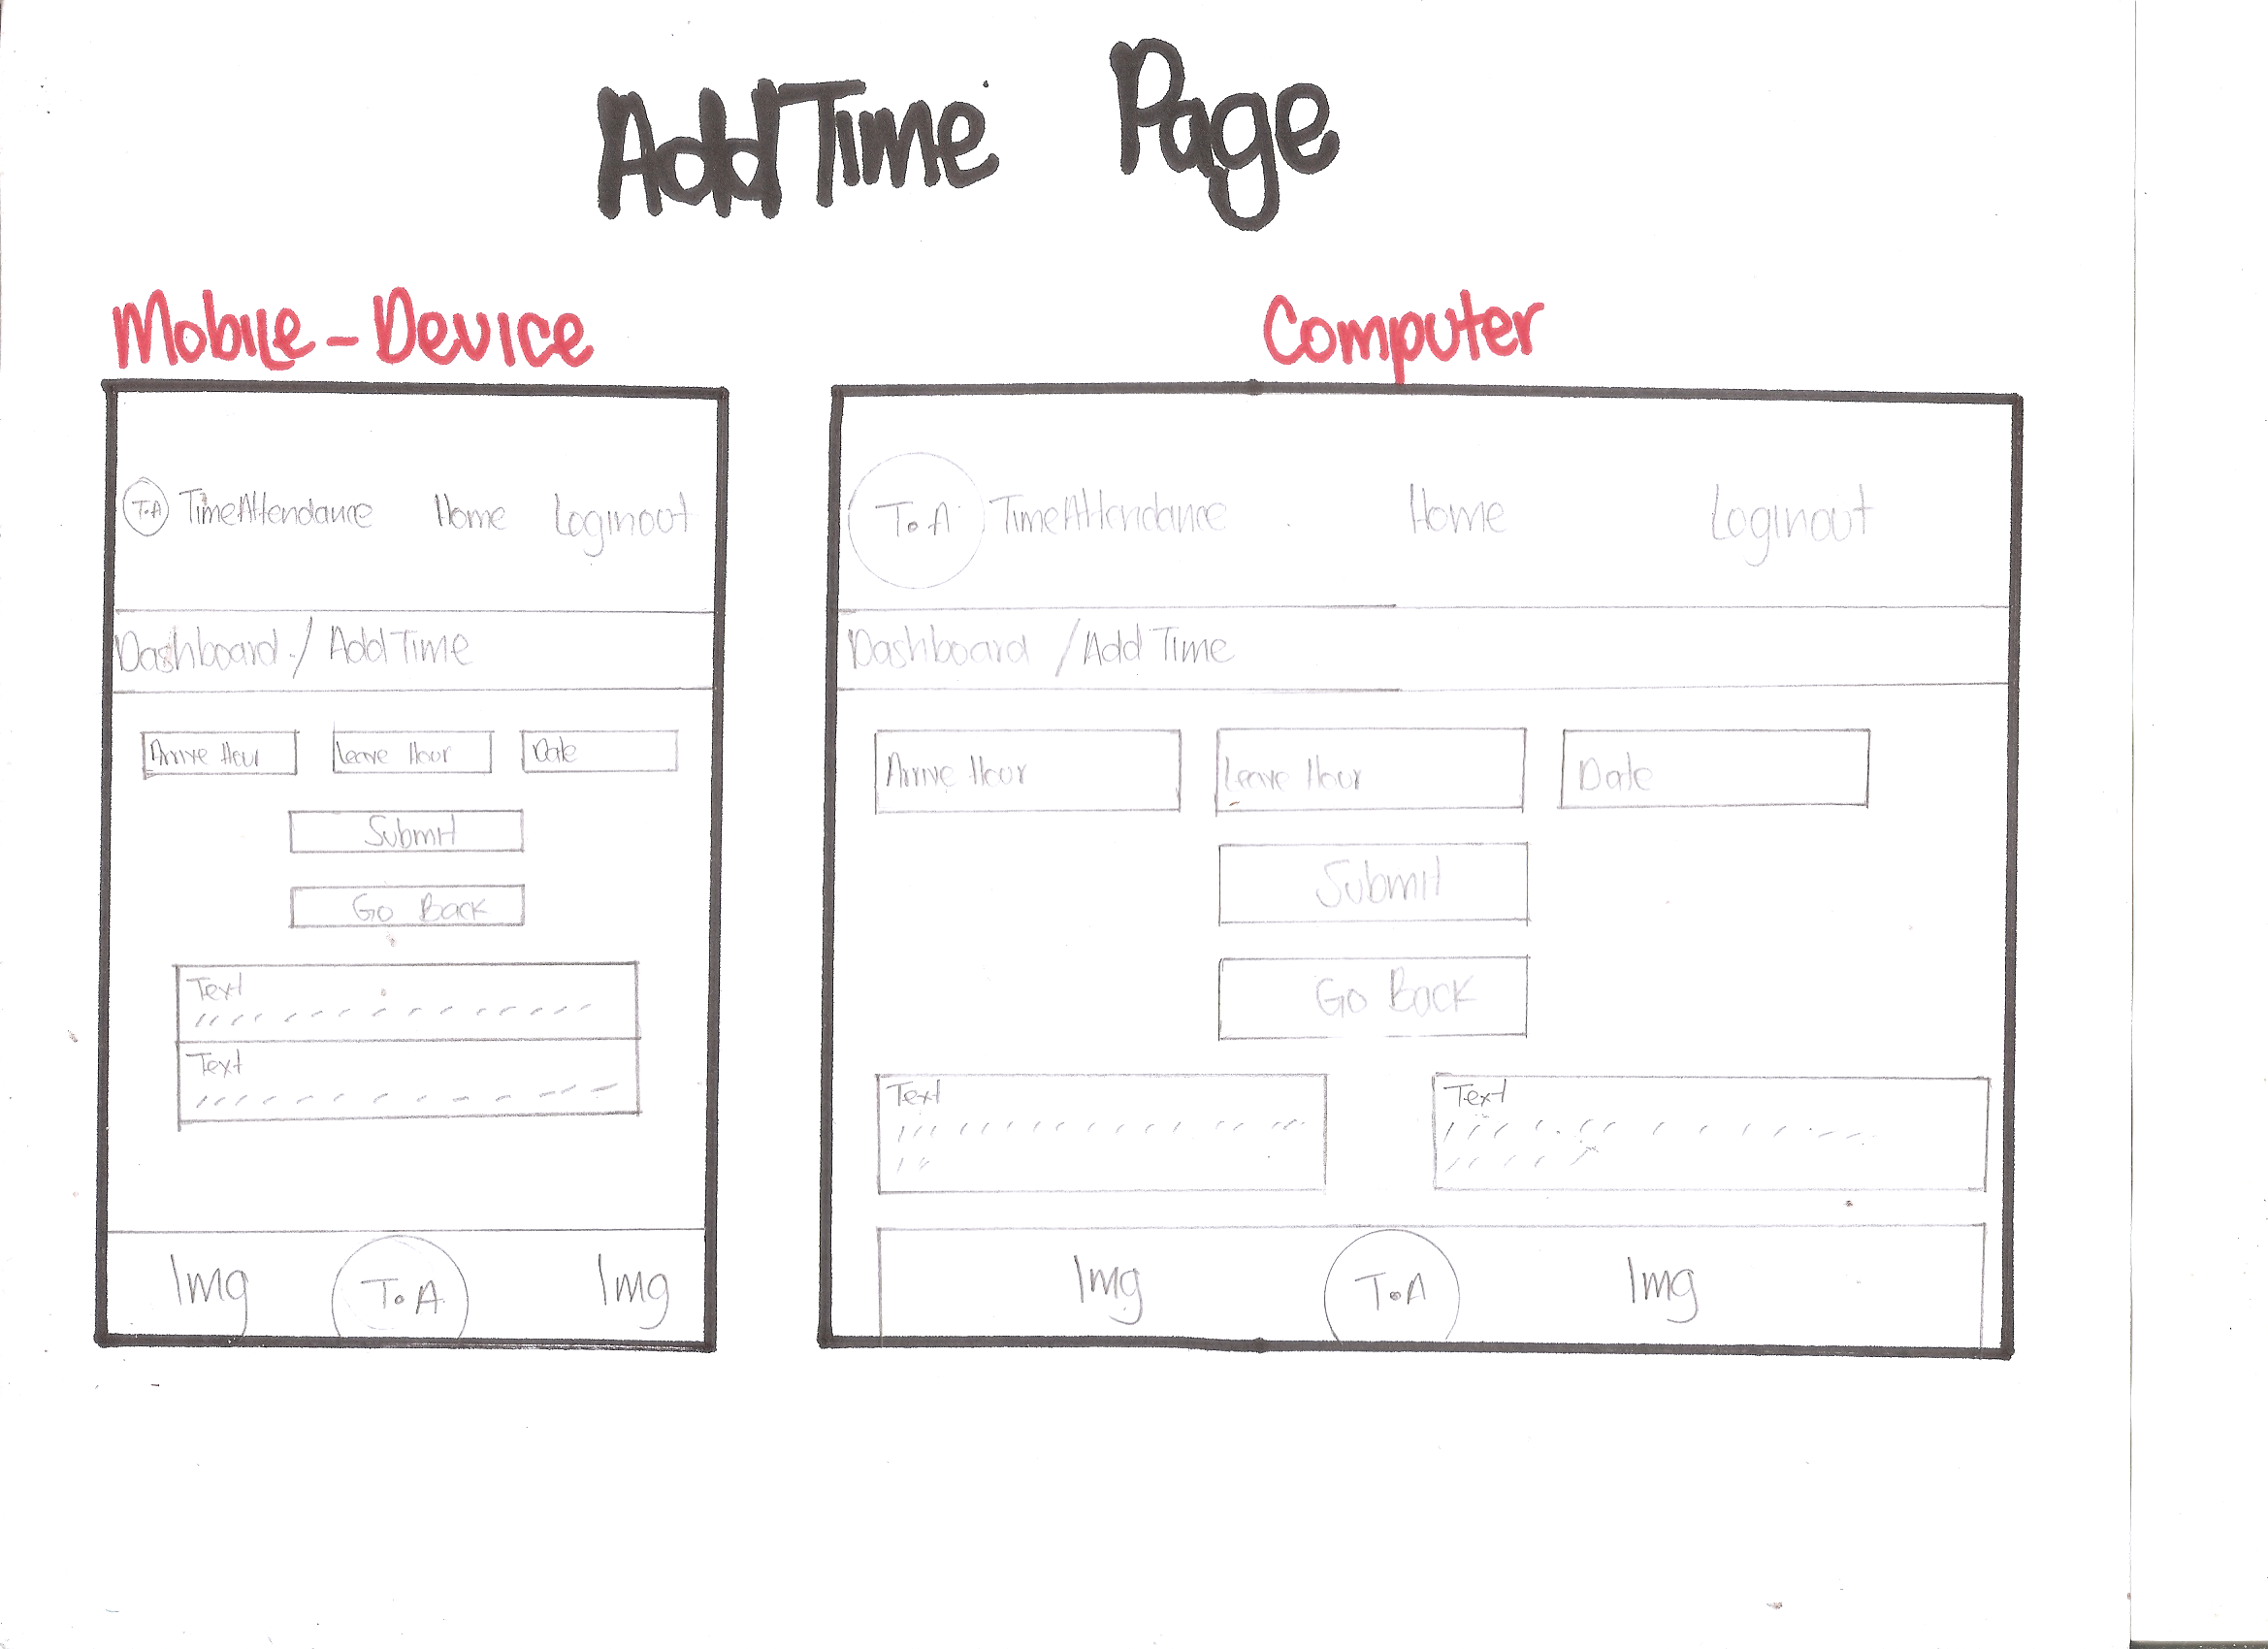 AddTime Page
Mobile-Device
T.A TimeAttendance Home Loginout
Dashboard / AddTime
Arrive Hour Leave Hour Date
Submit
Go Back
Text
Text
Img T.A Img
Computer
T.A TimeAttendance Home Loginout
Dashboard / Add Time
Arrive Hour Leave Hour Date
Submit
Go Back
Text Text
Img T.A Img